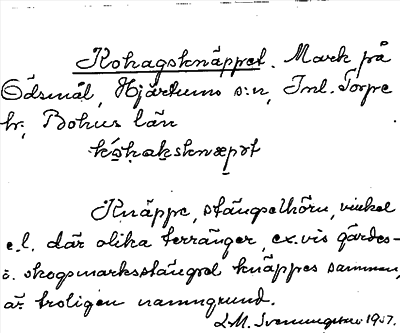 Kohagsknäppet. Mark på
Ödsmål, Hjärtums s:n, Inl. Torpe
hr, Bohus län
kó̱haksknæpət
Knäppe, stängselhörn, vinkel
e.l. där olika terränger, ex.vis gärdes-
o. skogsmarksstängsel knäppes samman,
är troligen namngrund.
1957.